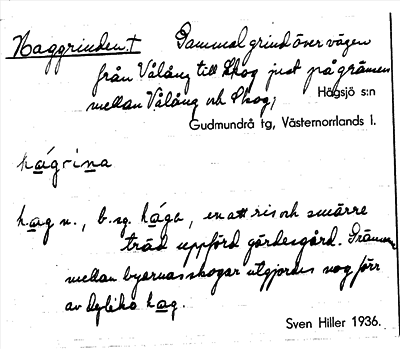 Haggrinden † Gammal grind över vägen
från Vålång till Skog just på gränsen
mellan Vålång och Skog, Hägsjö s:n
Gudmundrå tg, Västernorrlands l.
hágrina
hag n., b. sg. hága, en att ris och smärre
träd uppförd gärdesgård. Gränsen
mellan byarnas skogar utgjordes nog förr
av dylika hag.
Sven Hiller 1936.